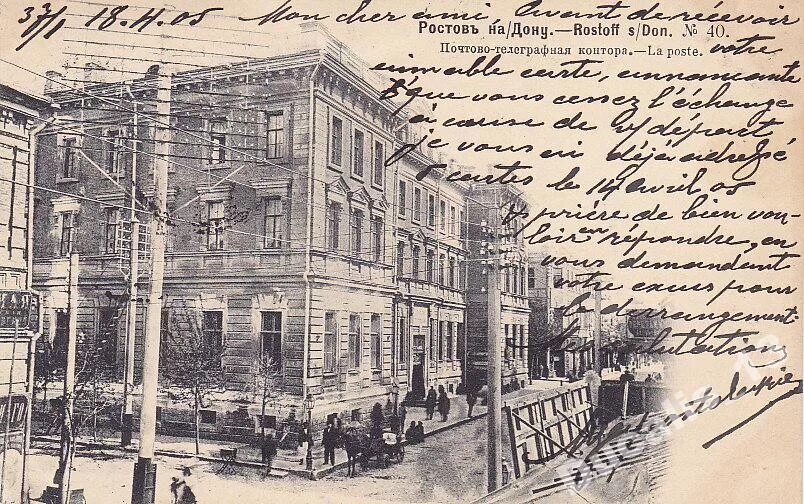 37/1 18.4.05 Mon cher ami! Avant de recevoir
Ростовъ на/Дону.—Rostoff s/Don. № 40.
Почтово-телеграфная контора.—La poste. votre
aimable carte, annonçante
que vous cessez l'échange
à cause de v/départ
je vous ai déjà adressé
cartes le 14 avril 05
prière de bien vou-
loir en répondre, en
vous demandant
votre excus pour
le derrangement
Mes salutations
НАЯ